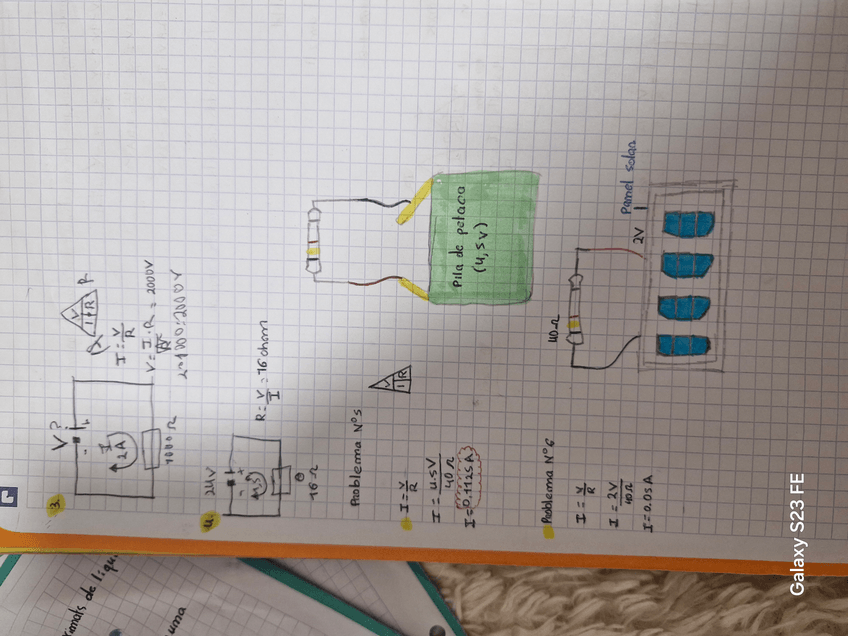 3.
V?
- +
I
2A
1000 Ω
V
I R
I = V/R
V = I · R = 2000V
2·1000=2000V
4. 24V
- +
1,5
16 Ω
R = V/I = 16 ohm
Problema Nº5
V
I R
I = V/R
I = 4,5V/40 Ω
I = 0,1125A
Pila de petaca
(4,5V)
Problema Nº6
I = V/R
I = 2V/40Ω
I = 0.05A
40Ω
2V
Panel solar
uma
Galaxy S23 FE